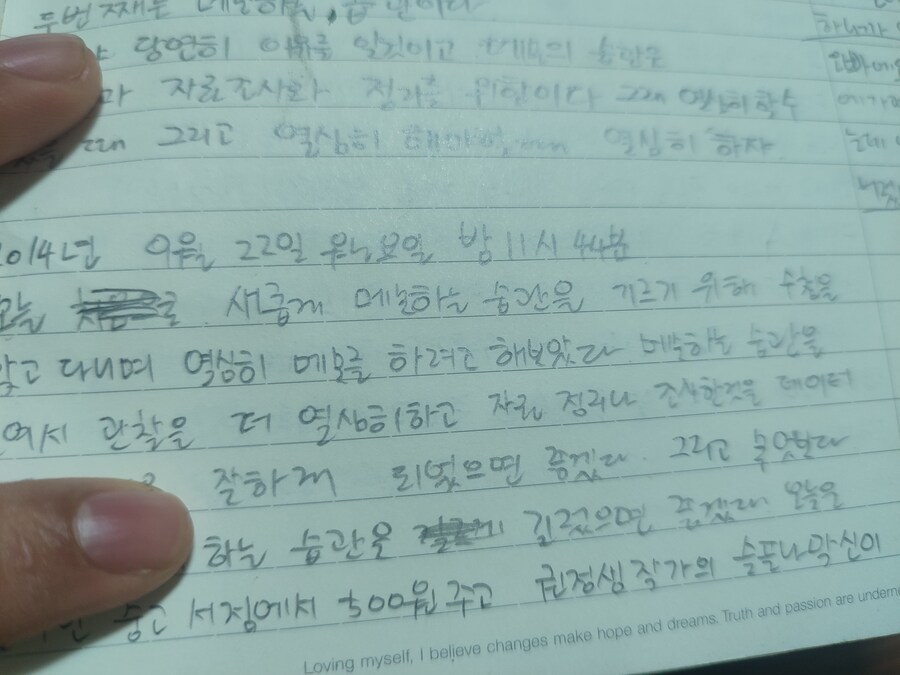 두번째는 메모하는 습관이다
당연히 이유를 일것이고 메모의 습관은
자료조사와 정리를 위함이다 그때 열심히 할수
그때 그리고 열심히 열심히 하자
2014년 9월 22일 월요일 밤 11시 44분
오늘 새롭게 메모하는 습관을 기르기 위해 수첩을
갖고 다니며 열심히 메모를 하려고 해보았다 메모하는 습관을
에서 관찰을 더 열심히하고 자료 정리나 조사한것을 데이터
잘하게 되었으면 좋겠다. 그리고
하는 습관을 길렀으면 좋겠다 오늘은
중고 서점에서 500원 주고 권정생 작가의 슬픈나막신이
Loving myself, I believe changes make hope and dreams. Truth and passion are
하니가